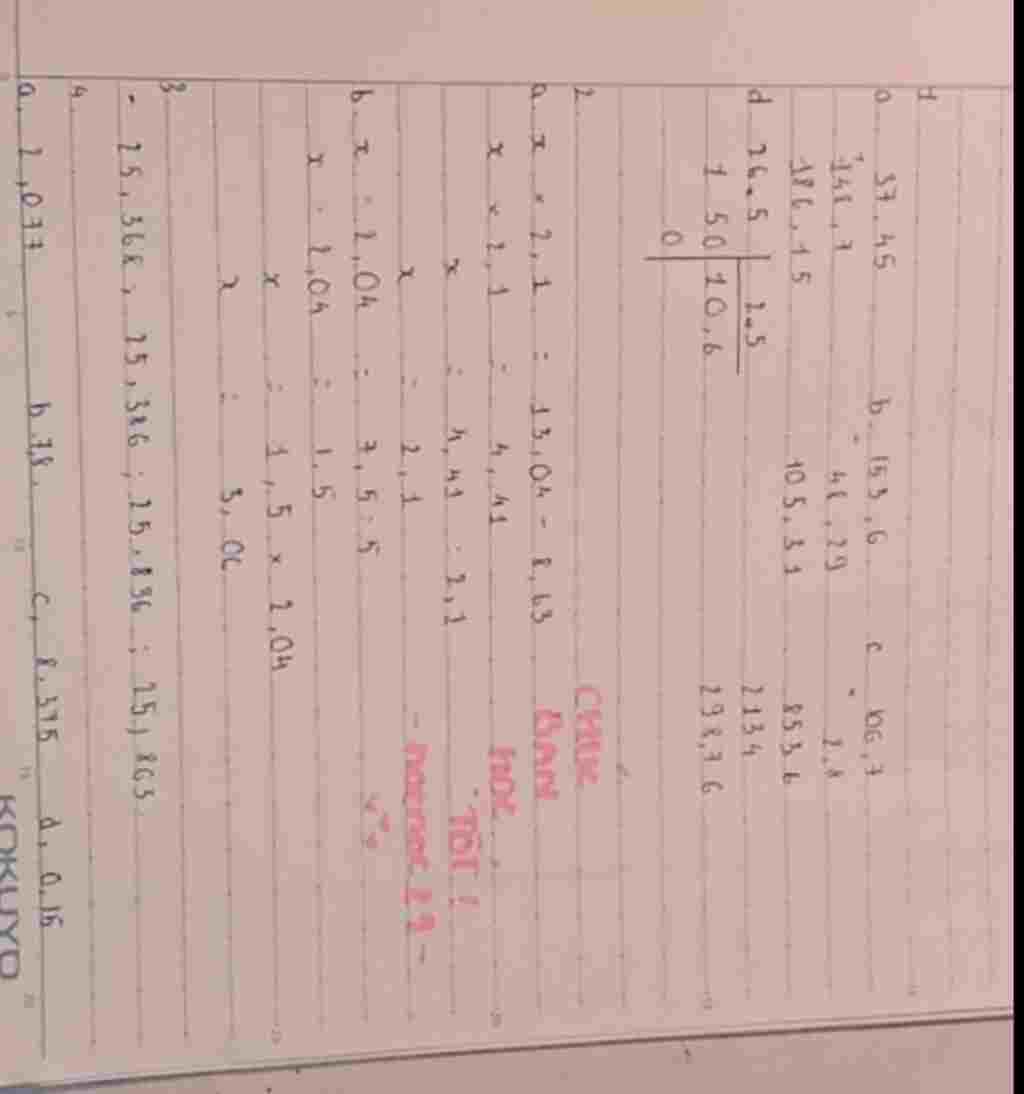 1
a 37,45 b. 153,6 c 106,7
+ 148,7 - 48,29 × 2,8
186,15 105,31 8536
d 26,5 2,5 2134
1 50 10,6 298,76
0
2
CHÚC
a. x × 2,1 = 13,04 - 8,63 BẠN
x × 2,1 = 4,41 HỌC
x = 4,41 : 2,1 TỐT!
x = 2,1
b. x : 2,04 = 7,5 : 5
x : 2,04 = 1,5
x = 1,5 × 2,04
x = 3,06
3
- 25,368 ; 25,386 ; 25,836 ; 25,863
4
a. 2,077 b. 7,8 c, 8,375 d, 0,16
KOKUYO